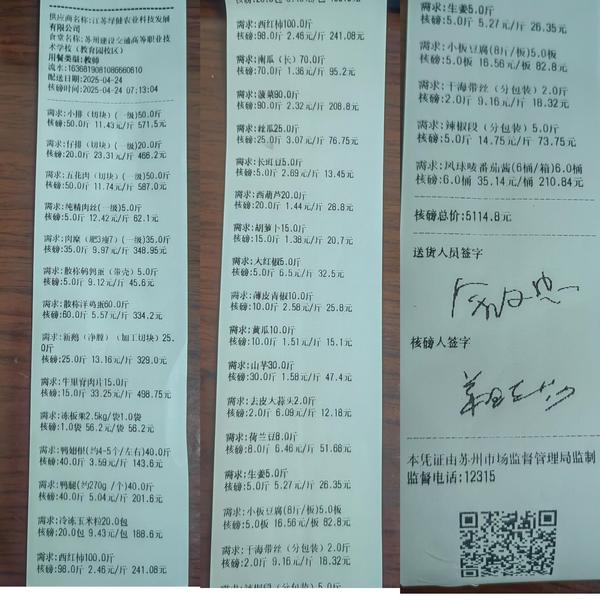 供应商名称:江苏绿健农业科技发展
有限公司
食堂名称:苏州建设交通高等职业技
术学校（教育园校区）
用餐类型:教师
流水:1636819081086660610
配送日期:2025-04-24
核磅时间:2025-04-24 07:13:04
需求:小排（切块）(一级)50.0斤
核磅:50.0斤 11.43元/斤 571.5元
需求:仔排（切块）(一级)20.0斤
核磅:20.0斤 23.31元/斤 466.2元
需求:五花肉（切块）(一级)50.0斤
核磅:50.0斤 11.74元/斤 587.0元
需求:纯精肉丝(一级)5.0斤
核磅:5.0斤 12.42元/斤 62.1元
需求:肉糜（肥3瘦7）(一级)35.0斤
核磅:35.0斤 9.97元/斤 348.95元
需求:散称鹌鹑蛋（带壳）5.0斤
核磅:5.0斤 9.12元/斤 45.6元
需求:散称洋鸡蛋60.0斤
核磅:60.0斤 5.57元/斤 334.2元
需求:新鹅（净膛）（加工切块）25.
0斤
核磅:25.0斤 13.16元/斤 329.0元
需求:牛里脊肉片15.0斤
核磅:15.0斤 33.25元/斤 498.75元
需求:冻板栗2.5kg/袋1.0袋
核磅:1.0袋 56.2元/袋 56.2元
需求:鸭翅根(约4-5个/左右)40.0斤
核磅:40.0斤 3.59元/斤 143.6元
需求:鸭腿(约270g /个)40.0斤
核磅:40.0斤 5.04元/斤 201.6元
需求:冷冻玉米粒20.0包
核磅:20.0包 9.43元/包 188.6元
需求:西红柿100.0斤
核磅:98.0斤 2.46元/斤 241.08元
需求:西红柿100.0斤
核磅:98.0斤 2.46元/斤 241.08元
需求:南瓜（长）70.0斤
核磅:70.0斤 1.36元/斤 95.2元
需求:菠菜90.0斤
核磅:90.0斤 2.32元/斤 208.8元
需求:丝瓜25.0斤
核磅:25.0斤 3.07元/斤 76.75元
需求:长豇豆5.0斤
核磅:5.0斤 2.69元/斤 13.45元
需求:西葫芦20.0斤
核磅:20.0斤 1.44元/斤 28.8元
需求:胡萝卜15.0斤
核磅:15.0斤 1.38元/斤 20.7元
需求:大红椒5.0斤
核磅:5.0斤 6.5元/斤 32.5元
需求:薄皮青椒10.0斤
核磅:10.0斤 2.58元/斤 25.8元
需求:黄瓜10.0斤
核磅:10.0斤 1.51元/斤 15.1元
需求:山芋30.0斤
核磅:30.0斤 1.58元/斤 47.4元
需求:去皮大蒜头2.0斤
核磅:2.0斤 6.09元/斤 12.18元
需求:荷兰豆8.0斤
核磅:8.0斤 6.46元/斤 51.68元
需求:生姜5.0斤
核磅:5.0斤 5.27元/斤 26.35元
需求:小板豆腐(8斤/板)5.0板
核磅:5.0板 16.56元/板 82.8元
需求:干海带丝（分包装）2.0斤
核磅:2.0斤 9.16元/斤 18.32元
需求:生姜5.0斤
核磅:5.0斤 5.27元/斤 26.35元
需求:小板豆腐(8斤/板)5.0板
核磅:5.0板 16.56元/板 82.8元
需求:干海带丝（分包装）2.0斤
核磅:2.0斤 9.16元/斤 18.32元
需求:辣椒段（分包装）5.0斤
核磅:5.0斤 14.75元/斤 73.75元
需求:凤球唛番茄酱(6桶/箱)6.0桶
核磅:6.0桶 35.14元/桶 210.84元
核磅总价:5114.8元
送货人员签字
核磅人签字
本凭证由苏州市场监督管理局监制
监督电话:12315